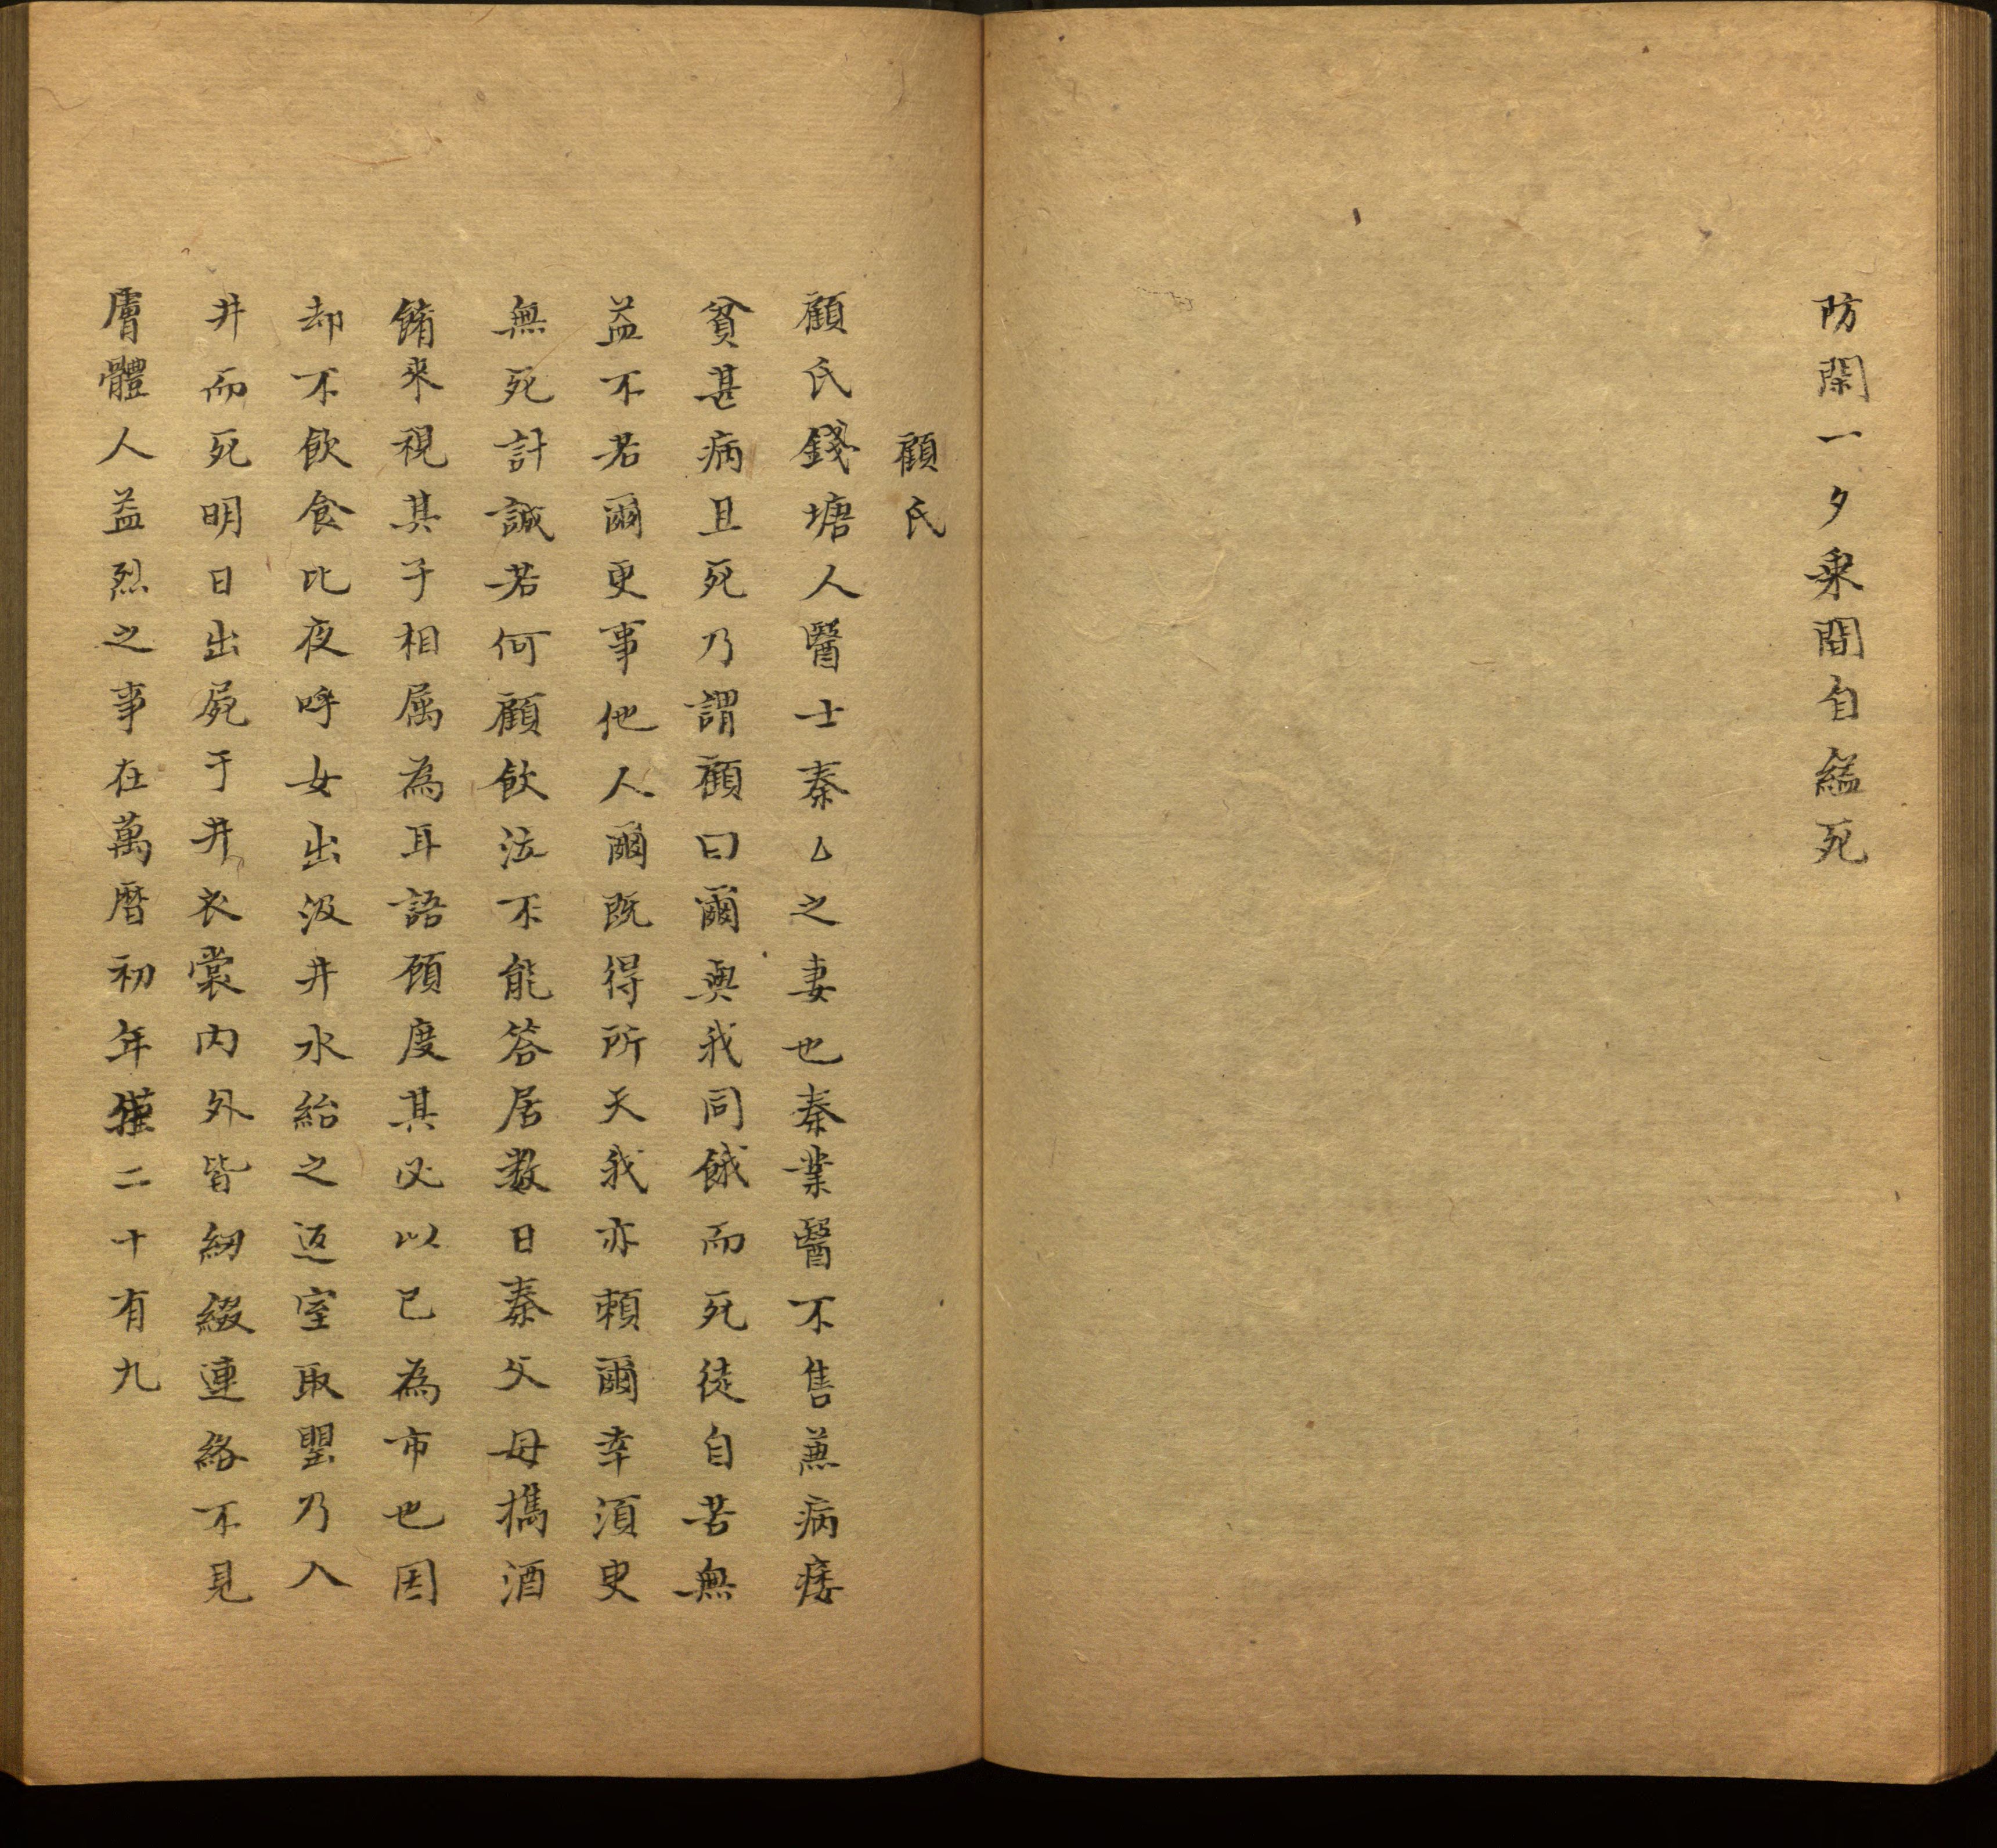 防閑一夕乘間自縊死
顧氏
顧氏錢塘人醫士秦乙之妻也秦業醫不售兼病痿
貧甚病且死乃謂顧曰爾與我同餓而死徒自苦無
益不若爾更事他人爾既得所天我亦賴爾幸須臾
無死計誠若何顧飲泣不能答居数日秦父母攜酒
餚來視其子相属為耳語顧度其必以己為市也因
却不飲食比夜呼女出汲井水紿之返室取甖乃入
井而死明日出屍于井衣裳内外皆紉綴連絡不見
膚體人益烈之事在萬曆初年僅二十有九